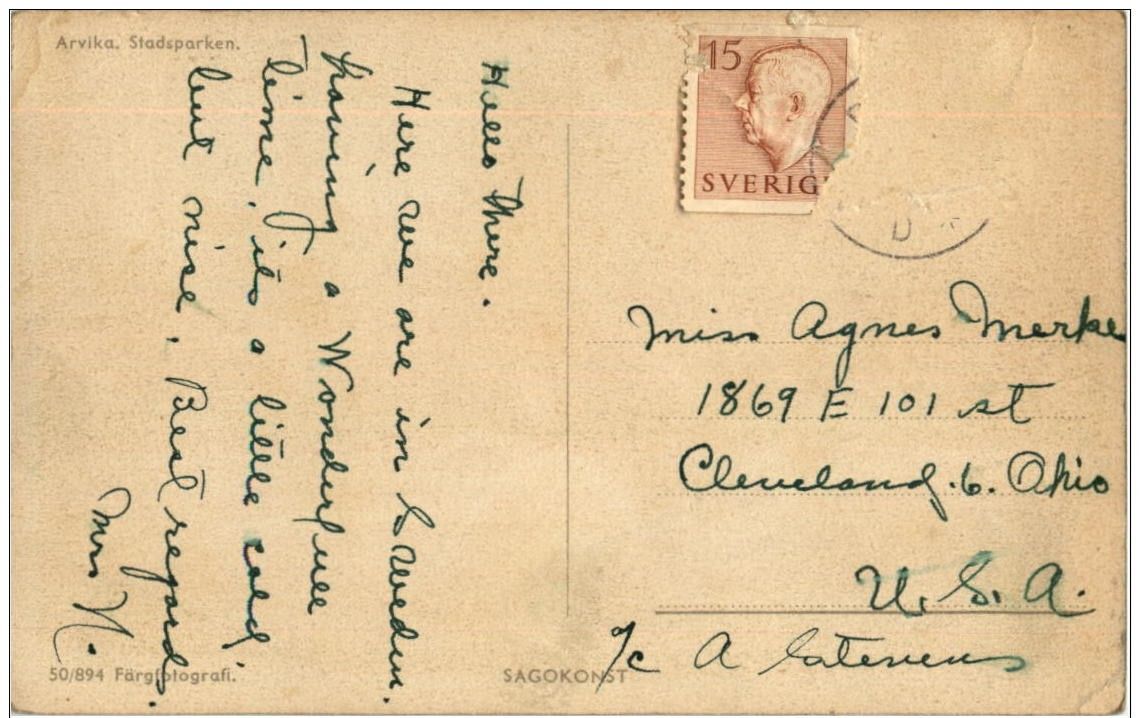 Arvika. Stadsparken.
Hello There.
Here we are in Sweden.
having a Wonderfull
Time, its a little cold
but nise. Best regards.
Mrs N.
50/894 Färgfotografi.
SAGOKONST
15
SVERIG
D
Miss Agnes Merke
1869 E 101 st
Cleveland. 6. Ohio
U. S. A.
c/o A Stevens